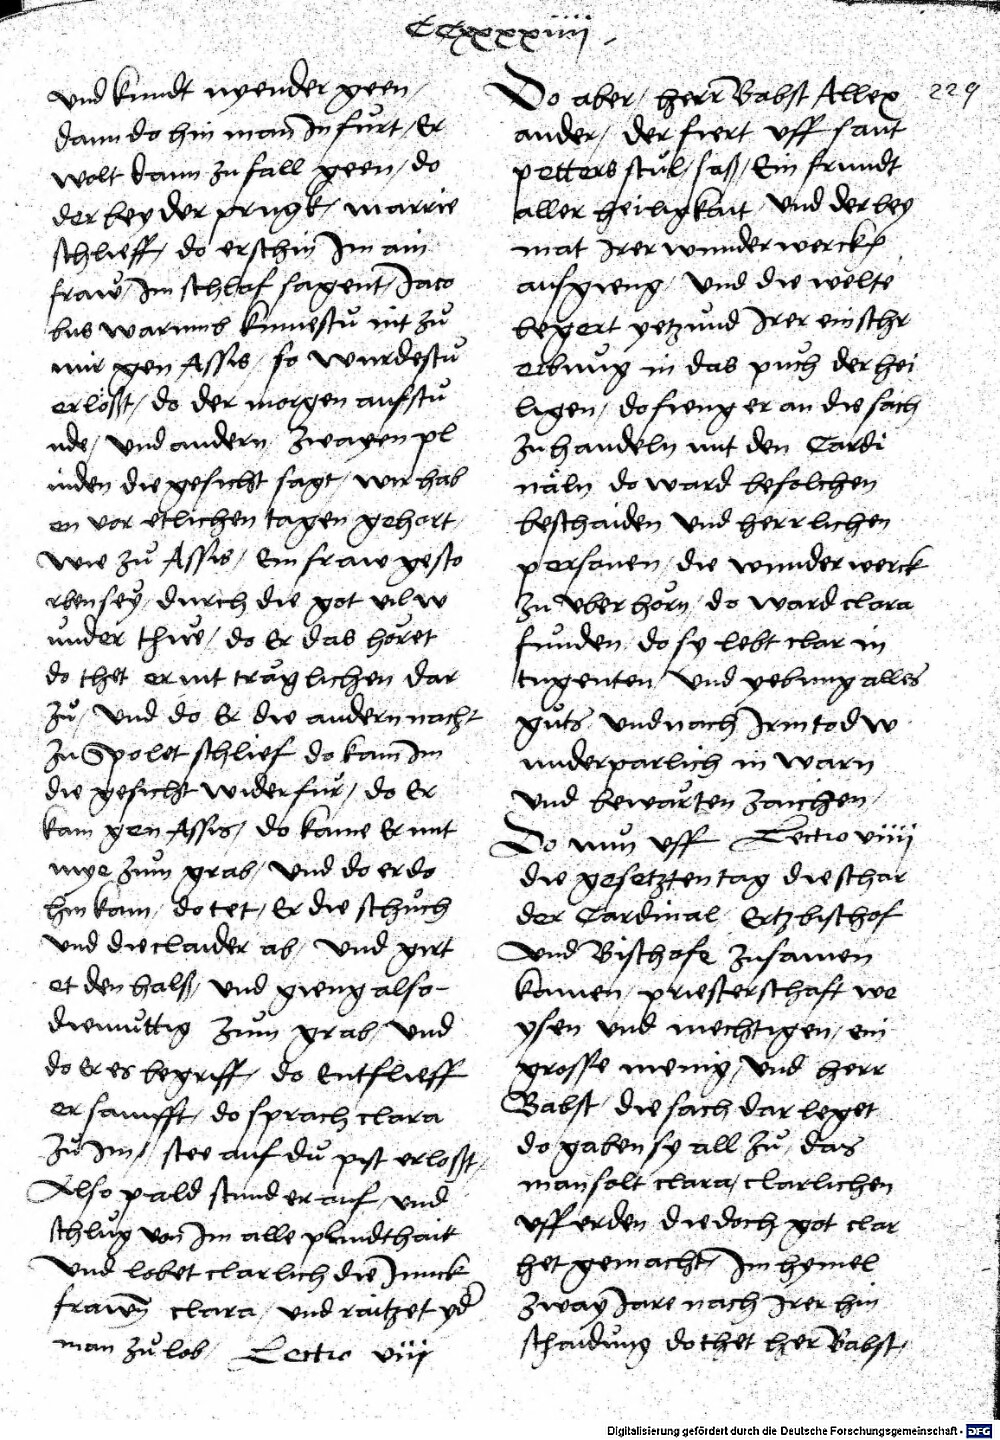 CCxxxxiiii
und kundt nyender geen /
dann do hin man In furt / Er
wolt dann zu fall geen / do
der bey der prugk / narrie
schlieff / do erschin Im ain
fraw / Im schlaf sagent / Jaco
bus warumb kumestu nit zu
mir gen Assis / so wurdestu
erlößt / do der morgen aufstu
nde / und andern zwayen pl
inden die gesicht sagt / wir hab
en vor etlichen tagen gehort /
wie zu Assis / Ein fraw gesto
rben sey / durch die got vil w
under thwe / do Er das höret
do thet er nit träglichen dar
zu / und do Er die andern nacht
zu Spolet schlief do kam Im
die gesicht widerfur / do Er
kam gen Assis / do kame Er mit
mye zum grab / und do er do
hin kam / do tet / Er die schuch
und die claider ab / und girt
et den halß / und gieng also
diemuttig zum grab / und
do Er es begriff / do Entslieff
er sannfft / do sprach clara
zu Im / stee auf du pist erloßt /
Also pald stund er auf / und
schlug von Im alle plindthait
und lobet clarlich die Junck
frawen clara / und raitzet yder
man zu lob / Lectio viii
Do aber / herr Babst Allex 229
ander / der fiert uff sant
petters stul / saß / Ein frundt
aller heiligkait und der bey
mat Irer wunderwerck
aufgieng / und die welte
begert yetzund Irer einschr
eibung in das puch der hei
ligen / do fieng er an die sach
zu handeln mit den Cardi
näln do ward befolchen
beschaiden und herrlichen
personen / die wunderwerck
zu uberhörn / do ward clara
funden do sy lebt clar in
tugenten / und yebung alles
guts und nach Irm tod w
underparlich in warn
und bewärten zaichen /
Do nun uff Lectio viiii
die gesetzten tag die schar
der Cardinal Ertzbischof
und Bischofe zusamen
kamen / priesterschaft we
ysen und mechtigen / ein
grosse menig / und herr
Babst / die sach dar leget
do gaben sy all zu / das
man solt clara / clarlichen
uff erden die doch got clar
het gemacht / Im hymel
zway Jare nach Irer hin
schaidung do thet her Babst /
Digitalisierung gefördert durch die Deutsche Forschungsgemeinschaft - DFG